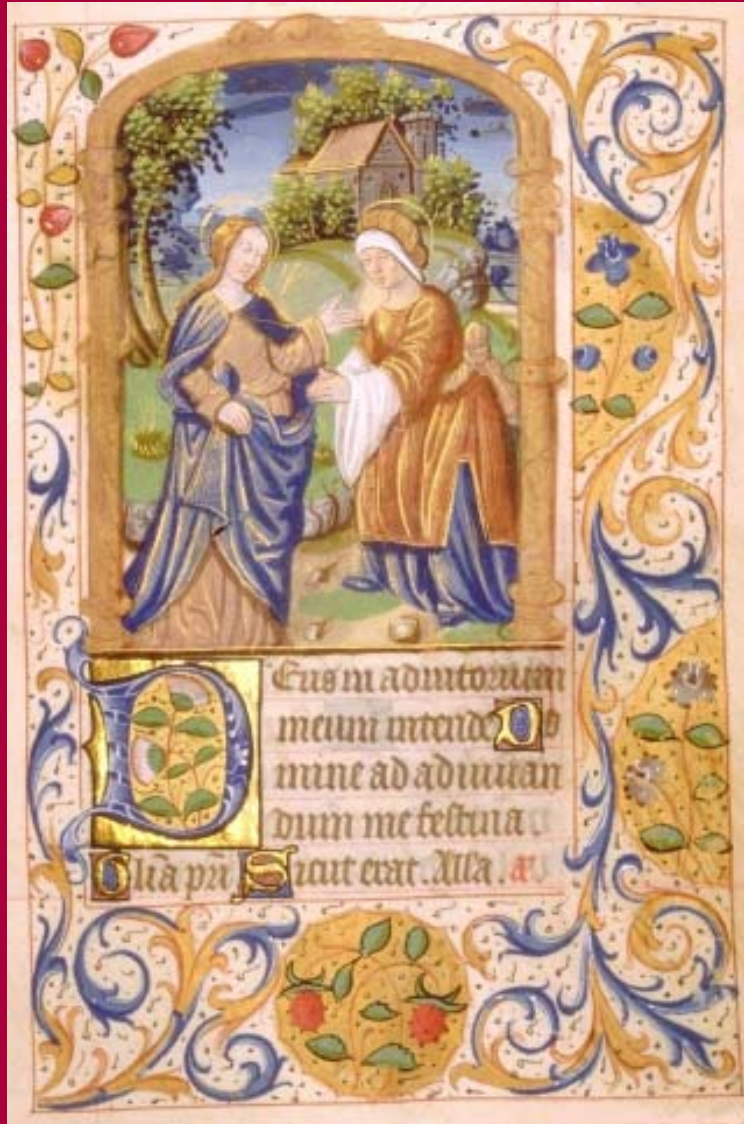 Deus in adiutorium
meum intende Do
mine ad adiuuan
dum me festina
Glia pri Sicut erat. Alla. ã